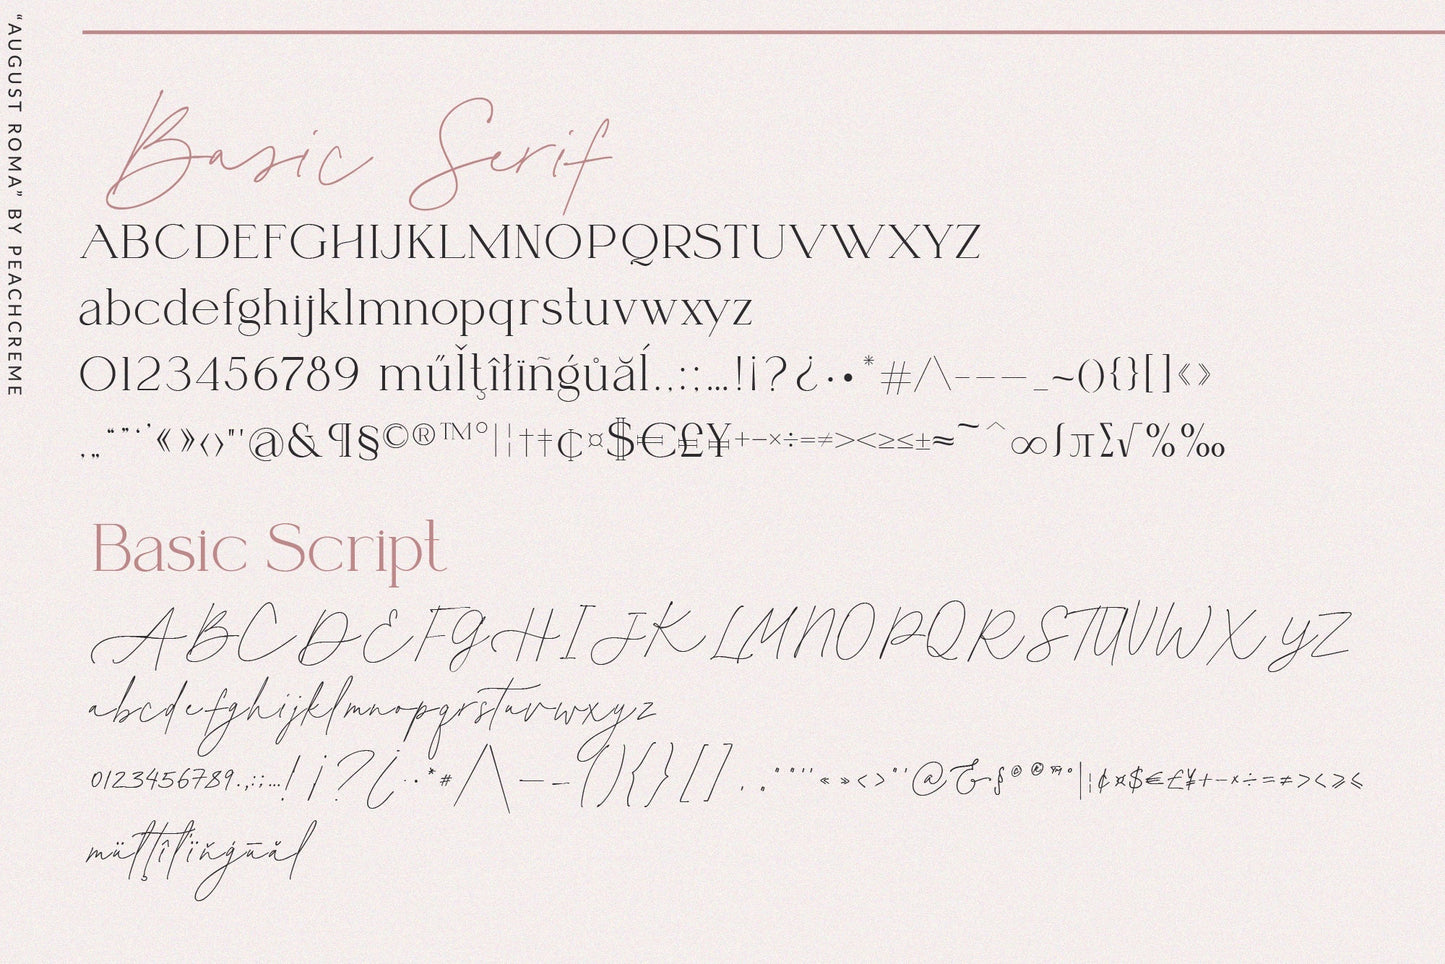 “AUGUST ROMA” BY PEACHCREME
Basic Serif
ABCDEFGHIJKLMNOPQRSTUVWXYZ
abcdefghijklmnopqrstuvwxyz
0123456789 műľţîłïñģůăĺ.,:;…!¡?¿·•*#/\-–—_~(){}[]《》
‚„“”‘’«»‹›"'@&¶§©®™°|¦†‡¢¤$€£¥+−×÷=≠><≥≤±≈~^∞∫π∑√%‰
Basic Script
ABCDEFGHIJKLMNOPQRSTUVWXYZ
abcdefghijklmnopqrstuvwxyz
0123456789.,:;…!¡?¿·•*#/\-–_(){}[]‚„“”‘’«»‹›"'@&§©®™°|¦¢¤$€£¥+−×÷=≠><≥≤
mültţîłïňģūăl